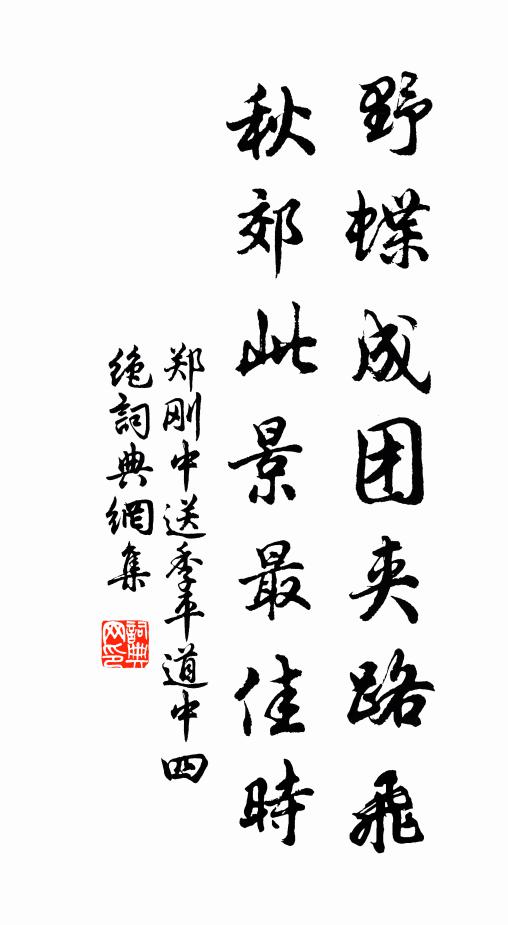 野蝶成团夹路飛
秋郊此景最佳時
郑刚中送季平道中四
绝詞典網集
詞典网印